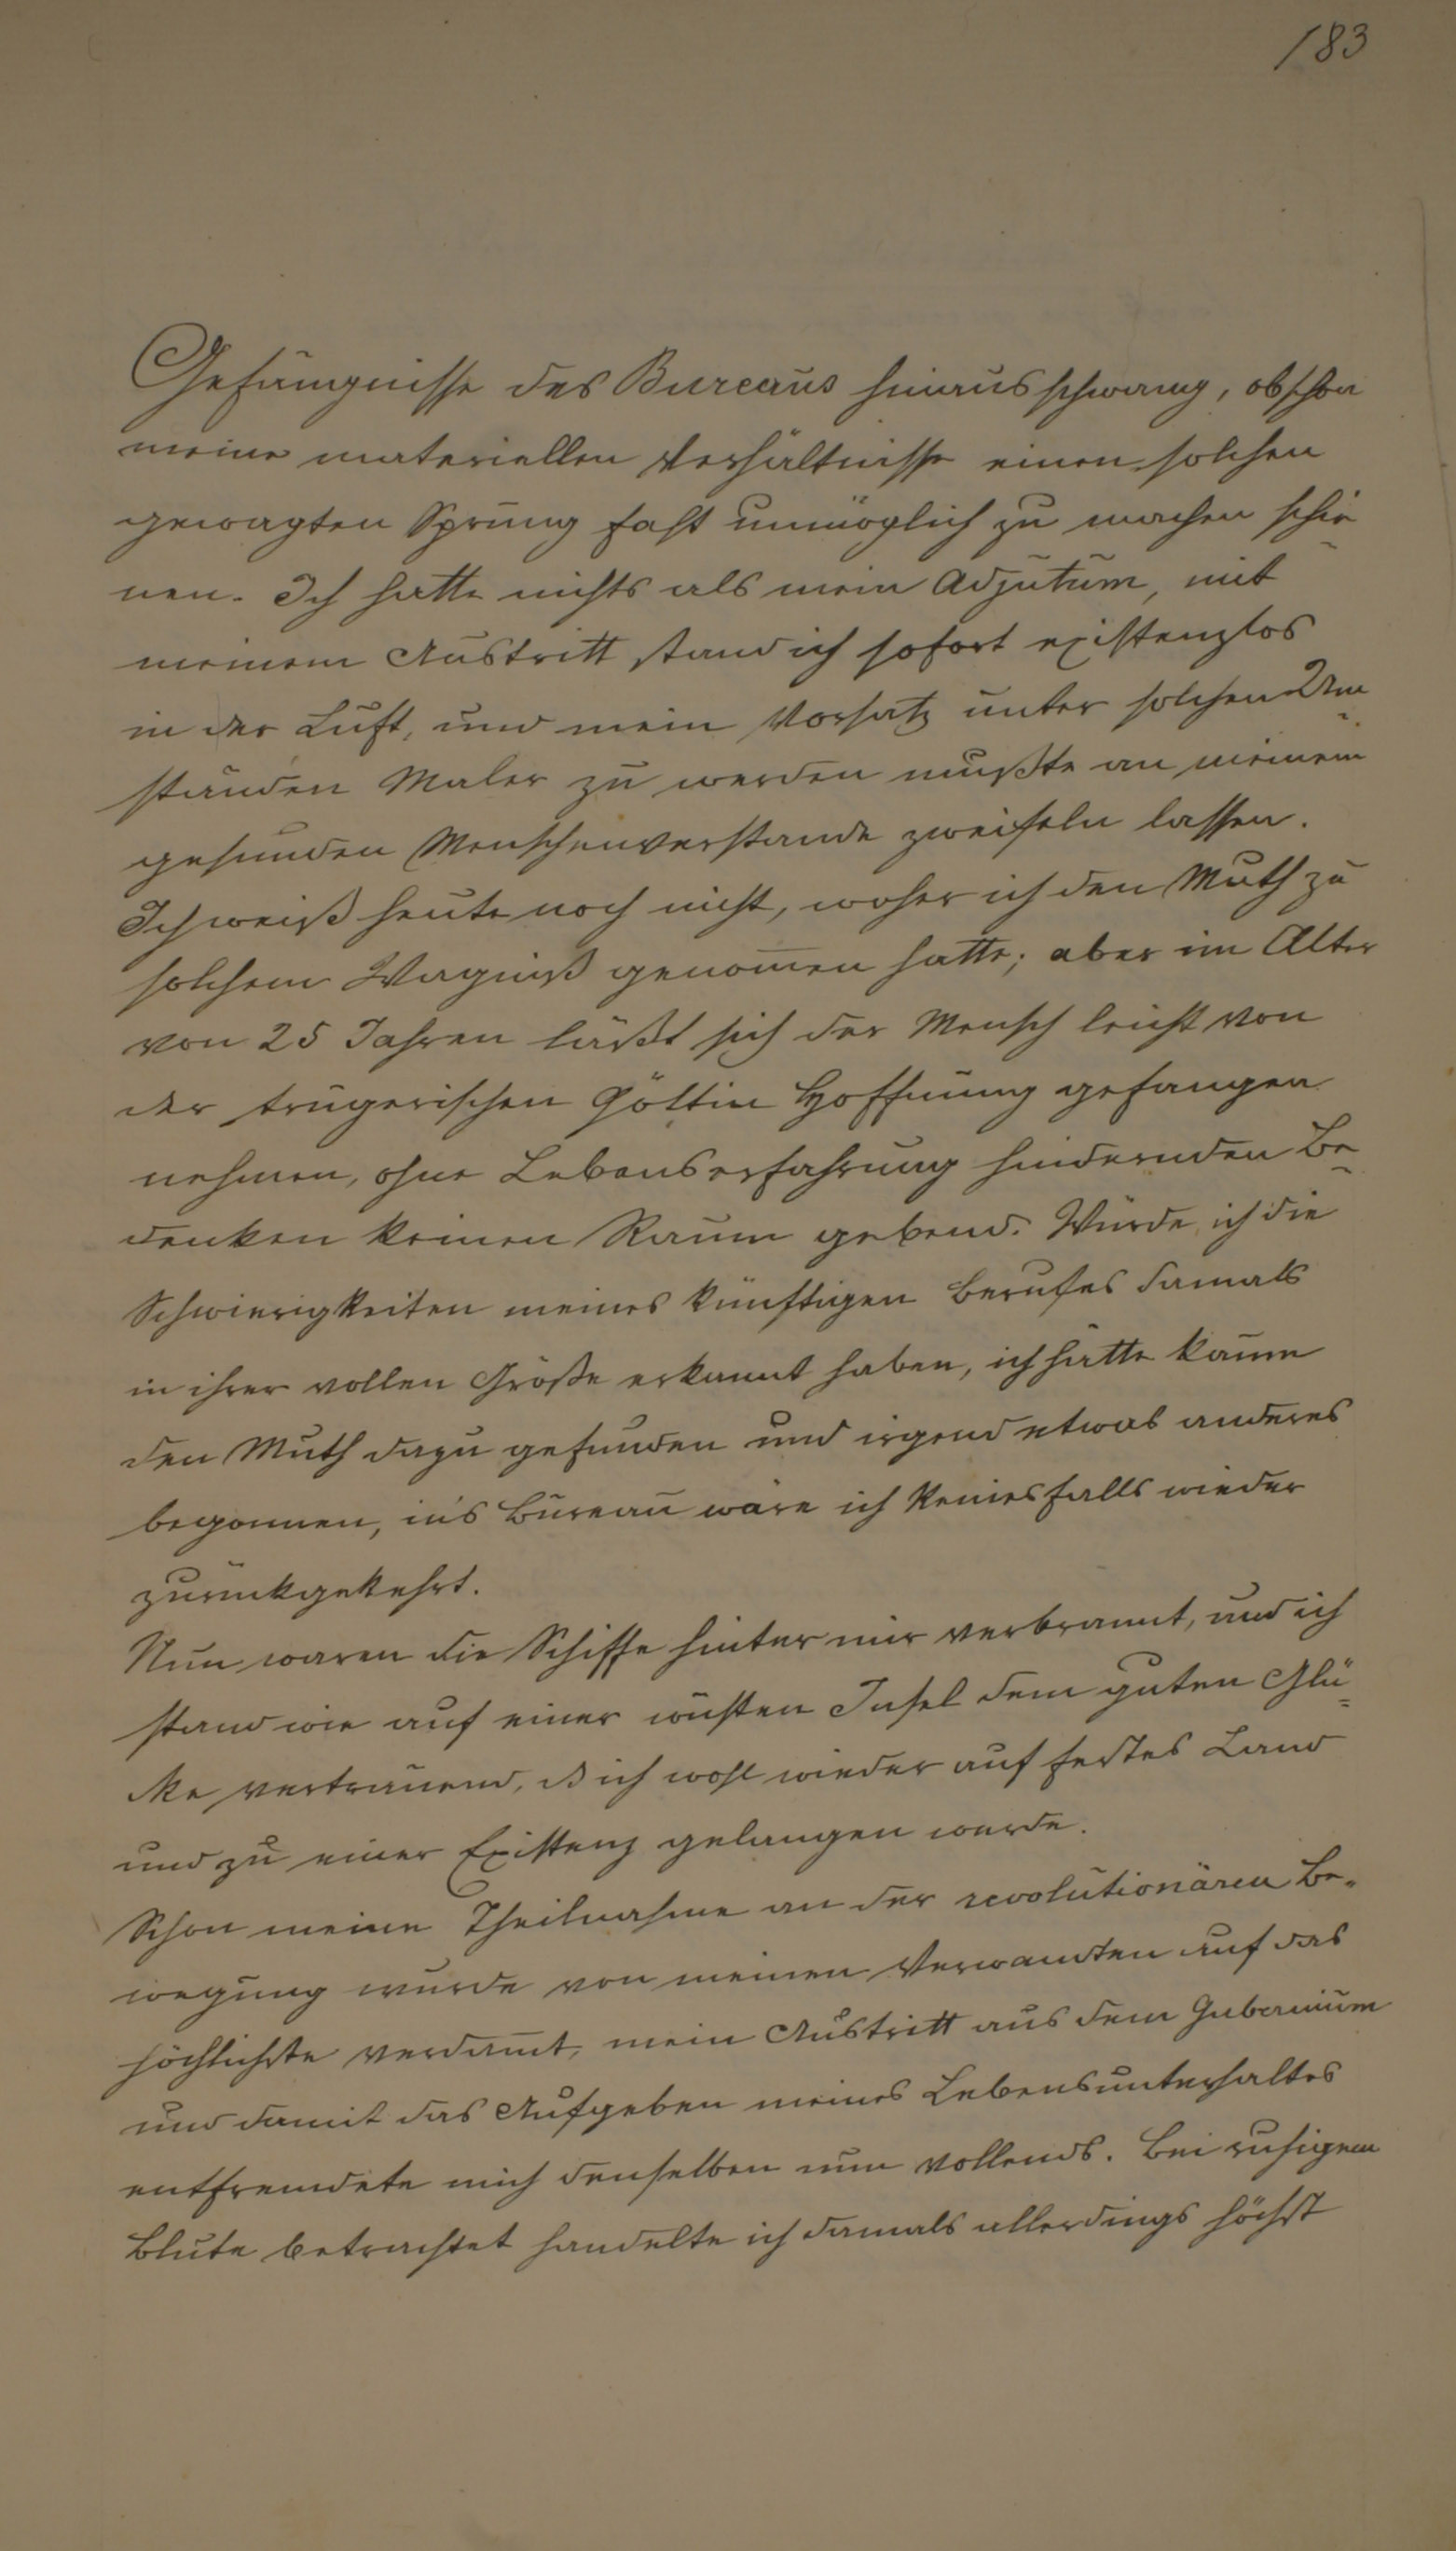 183
Gefängnisse des Bureaus hinausschwang, obschon
meine materiellen Verhältnisse einen solchen
gewagten Sprung fast unmöglich zu machen schie-
nen. Ich hatte nichts als mein Adjutum, mit
meinem Austritt stand ich sofort existenzlos
in der Luft, und mein Vorsatz unter solchen Um-
ständen Maler zu werden mußte an meinem
gesunden Menschenverstande zweifeln lassen.
Ich weiß heute noch nicht, woher ich den Muth zu
solchem Wagniß genom̄en hatte; aber im Alter
von 25 Jahren läßt sich der Mensch leicht von
der trügerischen Göttin Hoffnung gefangen
nehmen, ohne Lebenserfahrung hindernden Be-
denken keinen Raum gebend. Würde ich die
Schwierigkeiten meines künftigen Berufes damals
in ihrer vollen Größe erkannt haben, ich hätte kaum
den Muth dazu gefunden und irgend etwas anderes
begonnen, in's Bureau wäre ich keinesfalls wieder
zurückgekehrt.
Nun waren die Schiffe hinter mir verbrannt, und ich
stand wie auf einer wüsten Insel dem guten Glü-
cke vertrauend, ds ich wohl wieder auf festes Land
und zu einer Existenz gelangen werde.
Schon meine Theilnahme an der revolutionären Be-
wegung wurde von meinen Verwandten auf das
höchlichste verdam̄t, mein Austritt aus dem Gubernium
und damit das Aufgeben meines Lebensunterhaltes
entfremdete mich denselben nun vollends. Bei ruhigem
Blute betrachtet handelte ich damals allerdings höchst